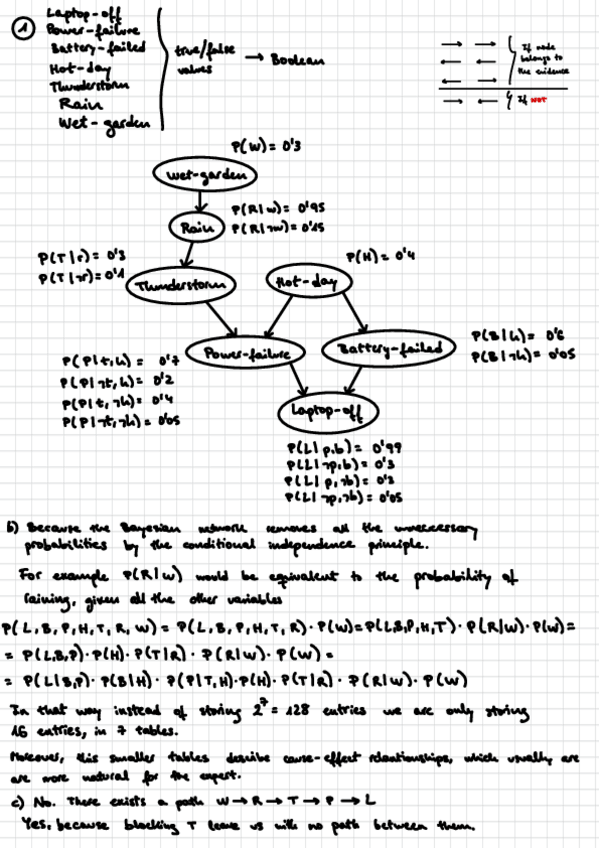 1
Laptop-off
Power-failure
Battery-failed
Hot-day
Thunderstorm
Rain
Wet-garden
true/false
values
→ Boolean
→ →
← ←
← →
If node
belongs to
the evidence
→ ← If NOT
P(W) = 0'3
Wet-garden
P(R|w) = 0'95
P(R|¬w) = 0'15
Rain
P(T|r) = 0'3
P(T|¬r) = 0'1
P(H) = 0'4
Thunderstorm
Hot-day
P(B|h) = 0'6
P(B|¬h) = 0'05
Power-failure
Battery-failed
P(P|t,h) = 0'7
P(P|¬t,h) = 0'2
P(P|t,¬h) = 0'4
P(P|¬t,¬h) = 0'05
Laptop-off
P(L|p,b) = 0'99
P(L|¬p,b) = 0'3
P(L|p,¬b) = 0'2
P(L|¬p,¬b) = 0'05
b) Because the Bayesian network removes all the unnecessary
probabilities by the conditional independence principle.
For example P(R|w) would be equivalent to the probability of
raining, given all the other variables
P(L,B,P,H,T,R,W) = P(L,B,P,H,T,R)·P(w) = P(L,B,P,H,T)·P(R|W)·P(w) =
= P(L,B,P)·P(H)·P(T|R)·P(R|W)·P(W) =
= P(L|B,P)·P(B|H)·P(P|T,H)·P(H)·P(T|R)·P(R|W)·P(W)
In that way instead of storing 2⁷ = 128 entries we are only storing
16 entries, in 7 tables.
Moreover, this smaller tables describe cause-effect relationships, which usually are
are more natural for the expert.
c) No. There exists a path W → R → T → P → L
Yes, because blocking T leave us with no path between them.